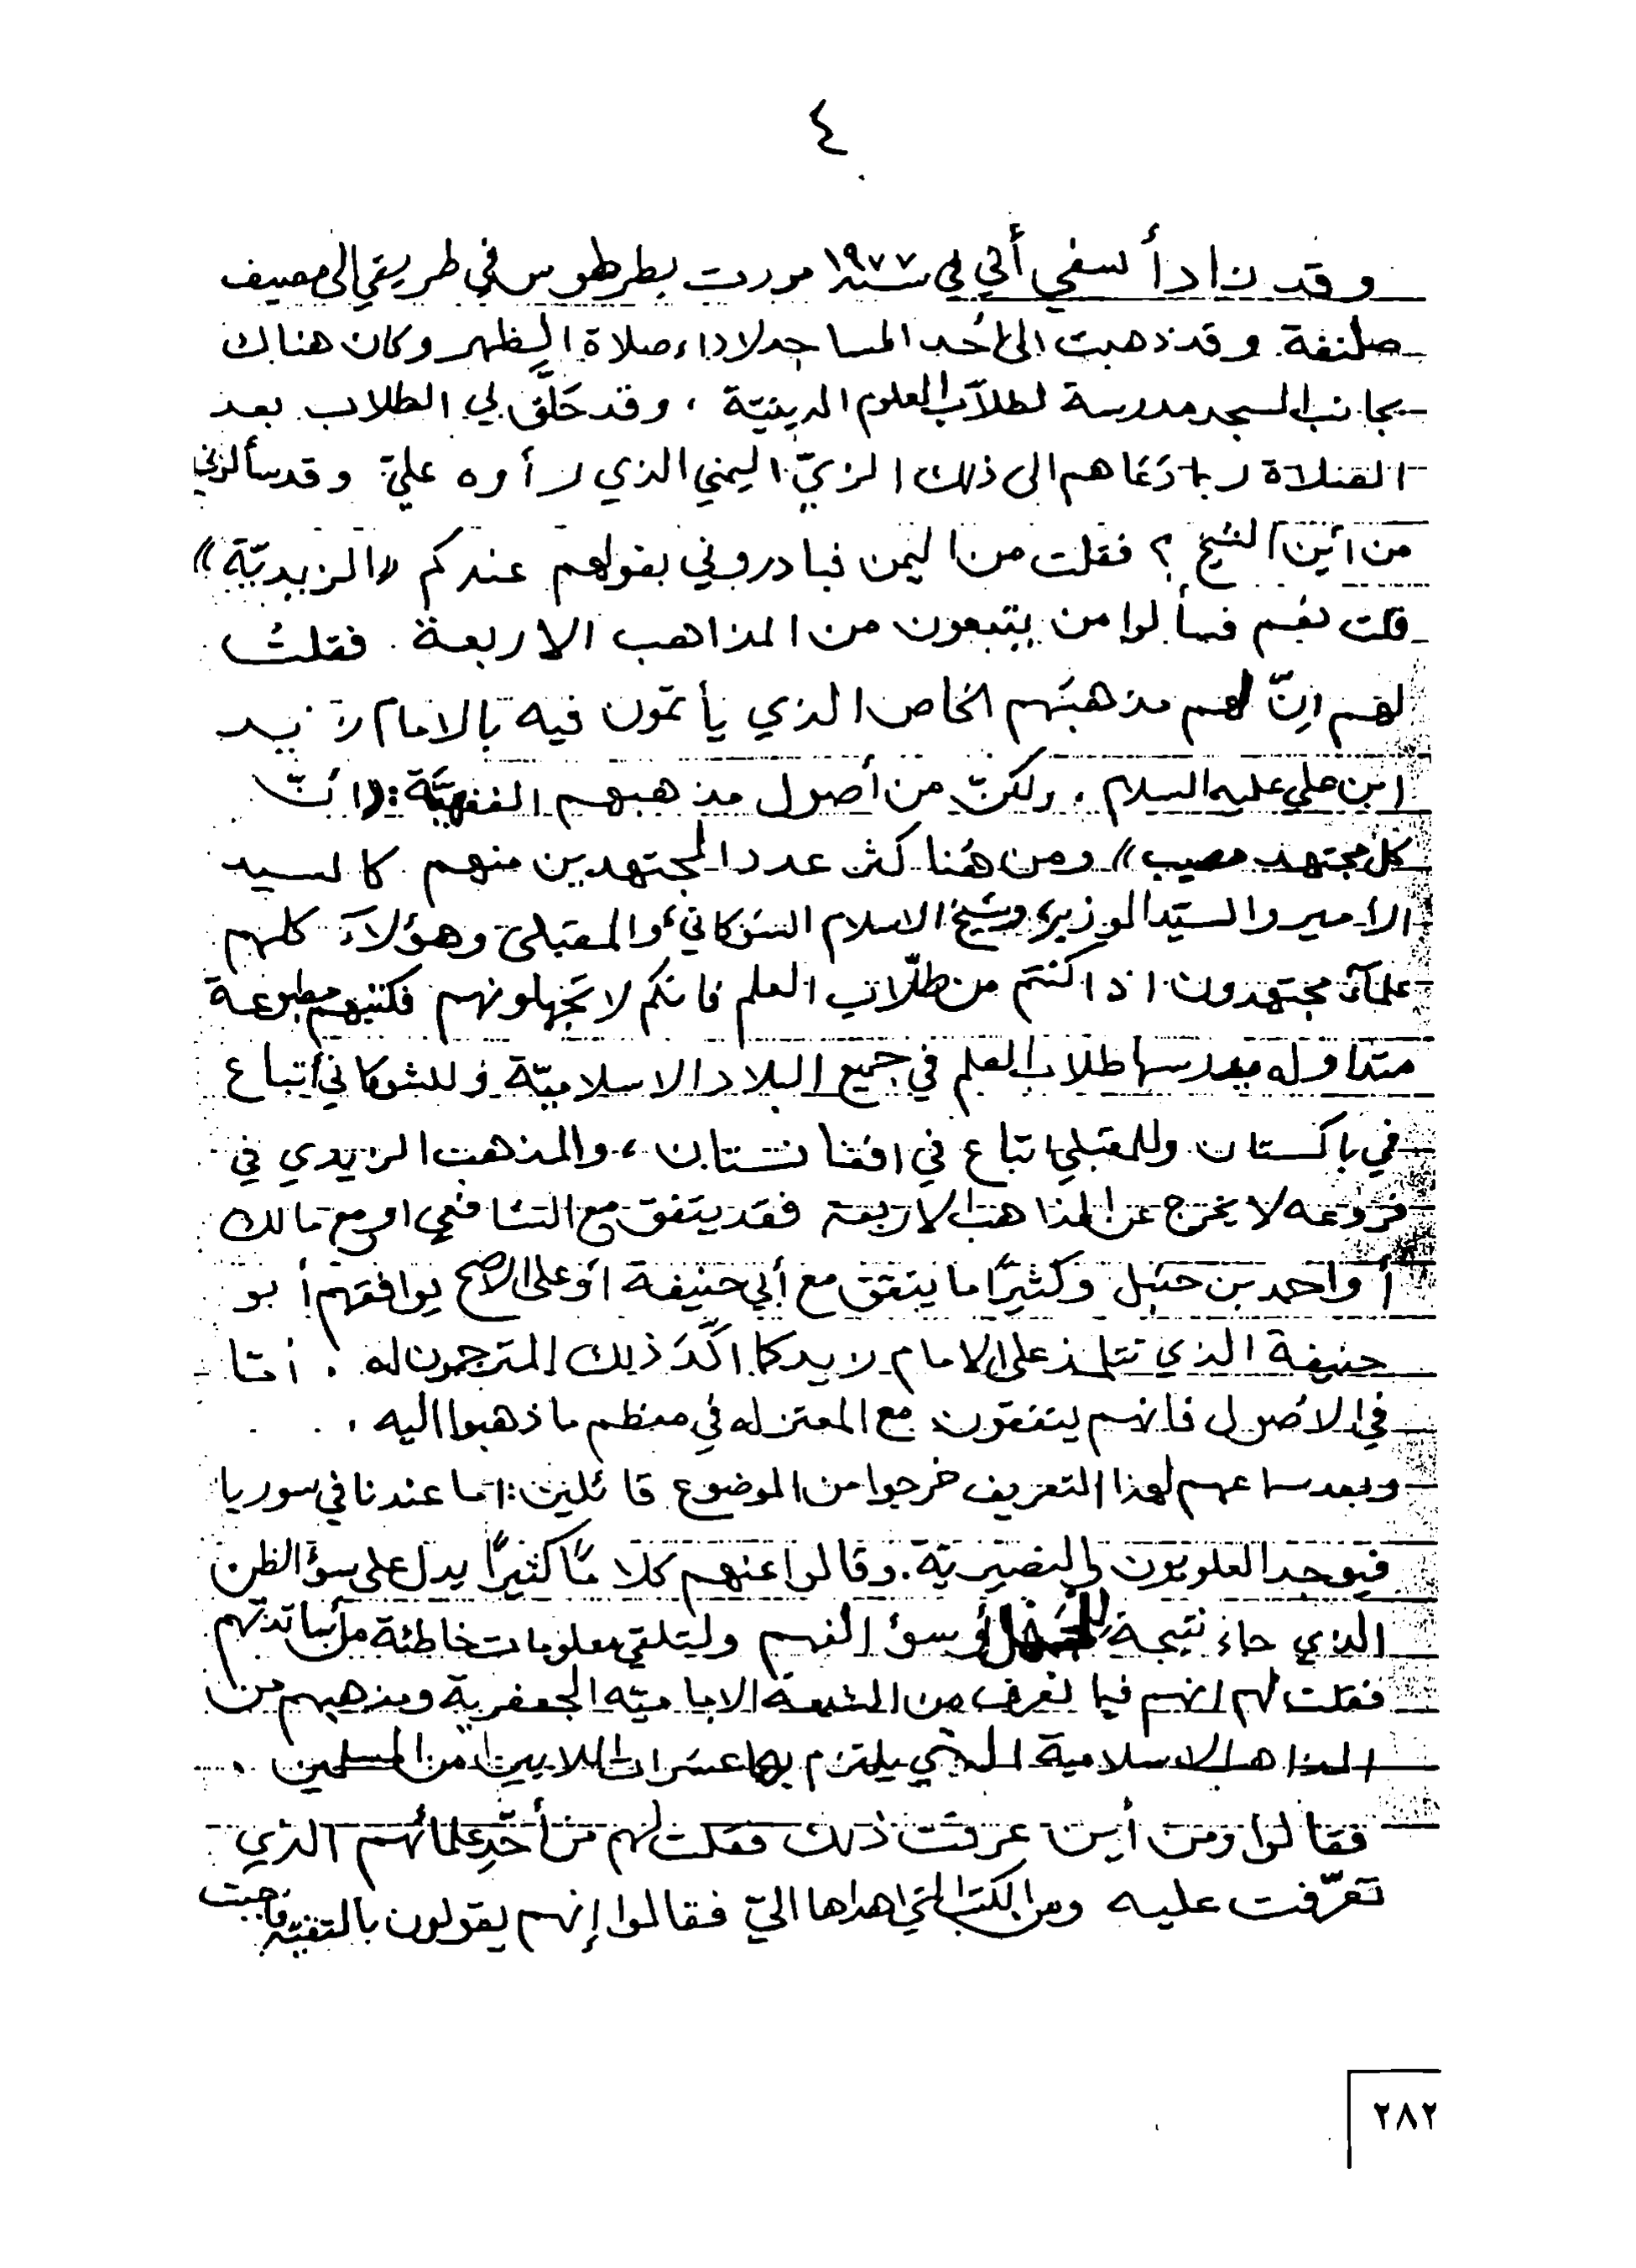 ٤
وقد زاد أسفي أني في سنة ١٩٧٧ مررت بطرطوس في طريقي الى مصيف
صلنفة. وقد ذهبت الى أحد المساجد لاداء صلاة الظهر وكان هناك
بجانب المسجد مدرسة لطلاب العلوم الدينيّة ، وقد حَلَّق لي الطلاب بعد
الصلاة ربما دَعَاهم الى ذلك الزيّ اليمني الذي رأوه عليّ وقد سألوني
من أين الشيخ ؟ فقلت من اليمن فبادروني بقولهم عندكم «الزيديّة»
قلت نعم فسألوا من يتبعون من المذاهب الاربعة . فقلتُ
لهم إنّ لهم مذهبَهم الخاص الذي يأتمّون فيه بالامام زيد
ابن علي عليه السلام ، ولكنّ من أصول مذهبهم الفقهيَّة : «انّ
كل مجتهد مصيب» ومن هُنا كثر عدد المجتهدين منهم كالسيد
الامير والسيّد الوزير وشيخ الاسلام الشوكاني والمقبلي وهؤلاء كلهم
علماء مجتهدون اذا كنتم من طلّاب العلم فانكم لا تجهلونهم فكتبهم مطبوعة
متداوله يدرسها طلاب العلم في جميع البلاد الاسلاميّة وللشوكاني أتباع
في باكستان وللمقبلي اتباع في افغانستان ، والمذهب الزيدي في
فروعه لا يخرج عن المذاهب الاربعة فقد يتفق مع الشافعي او مع مالك
أو احمد بن حنبل وكثيرًا ما يتفق مع أبي حنيفة أو على الاصح يوافقهم أبو
حنيفة الذي تتلمذ على الامام زيد كما اكَّدَ ذلك المترجمون له . أمّا
في الاُصول فانهم يتفقون مع المعتزله في معظم ما ذهبوا اليه .
وبعد سماعهم لهذا التعريف خرجوا من الموضوع قائلين : اما عندنا في سوريا
فيوجد العلويون والنصيريّة . وقالوا عنهم كلامًا كثيرًا يدل على سوء الظن
الذي جاء نتيجة للجهل أو سوء الفهم وليتلقي معلومات خاطئة من أساتذتهم
فقلت لهم إنهم فيما نعرف من الشيعة الاماميّه الجعفرية ومذهبهم من
المذاهب الاسلامية الذي يلتزم بها عشرات الملايين من المسلمين .
فقالوا ومن أين عرفت ذلك فقلت لهم من أحد علمائهم الذي
تعرّفت عليه ومن الكتب التي اهداها اليّ فقالوا إنهم يقولون بالتقيّه فأجبت
٢٨٢